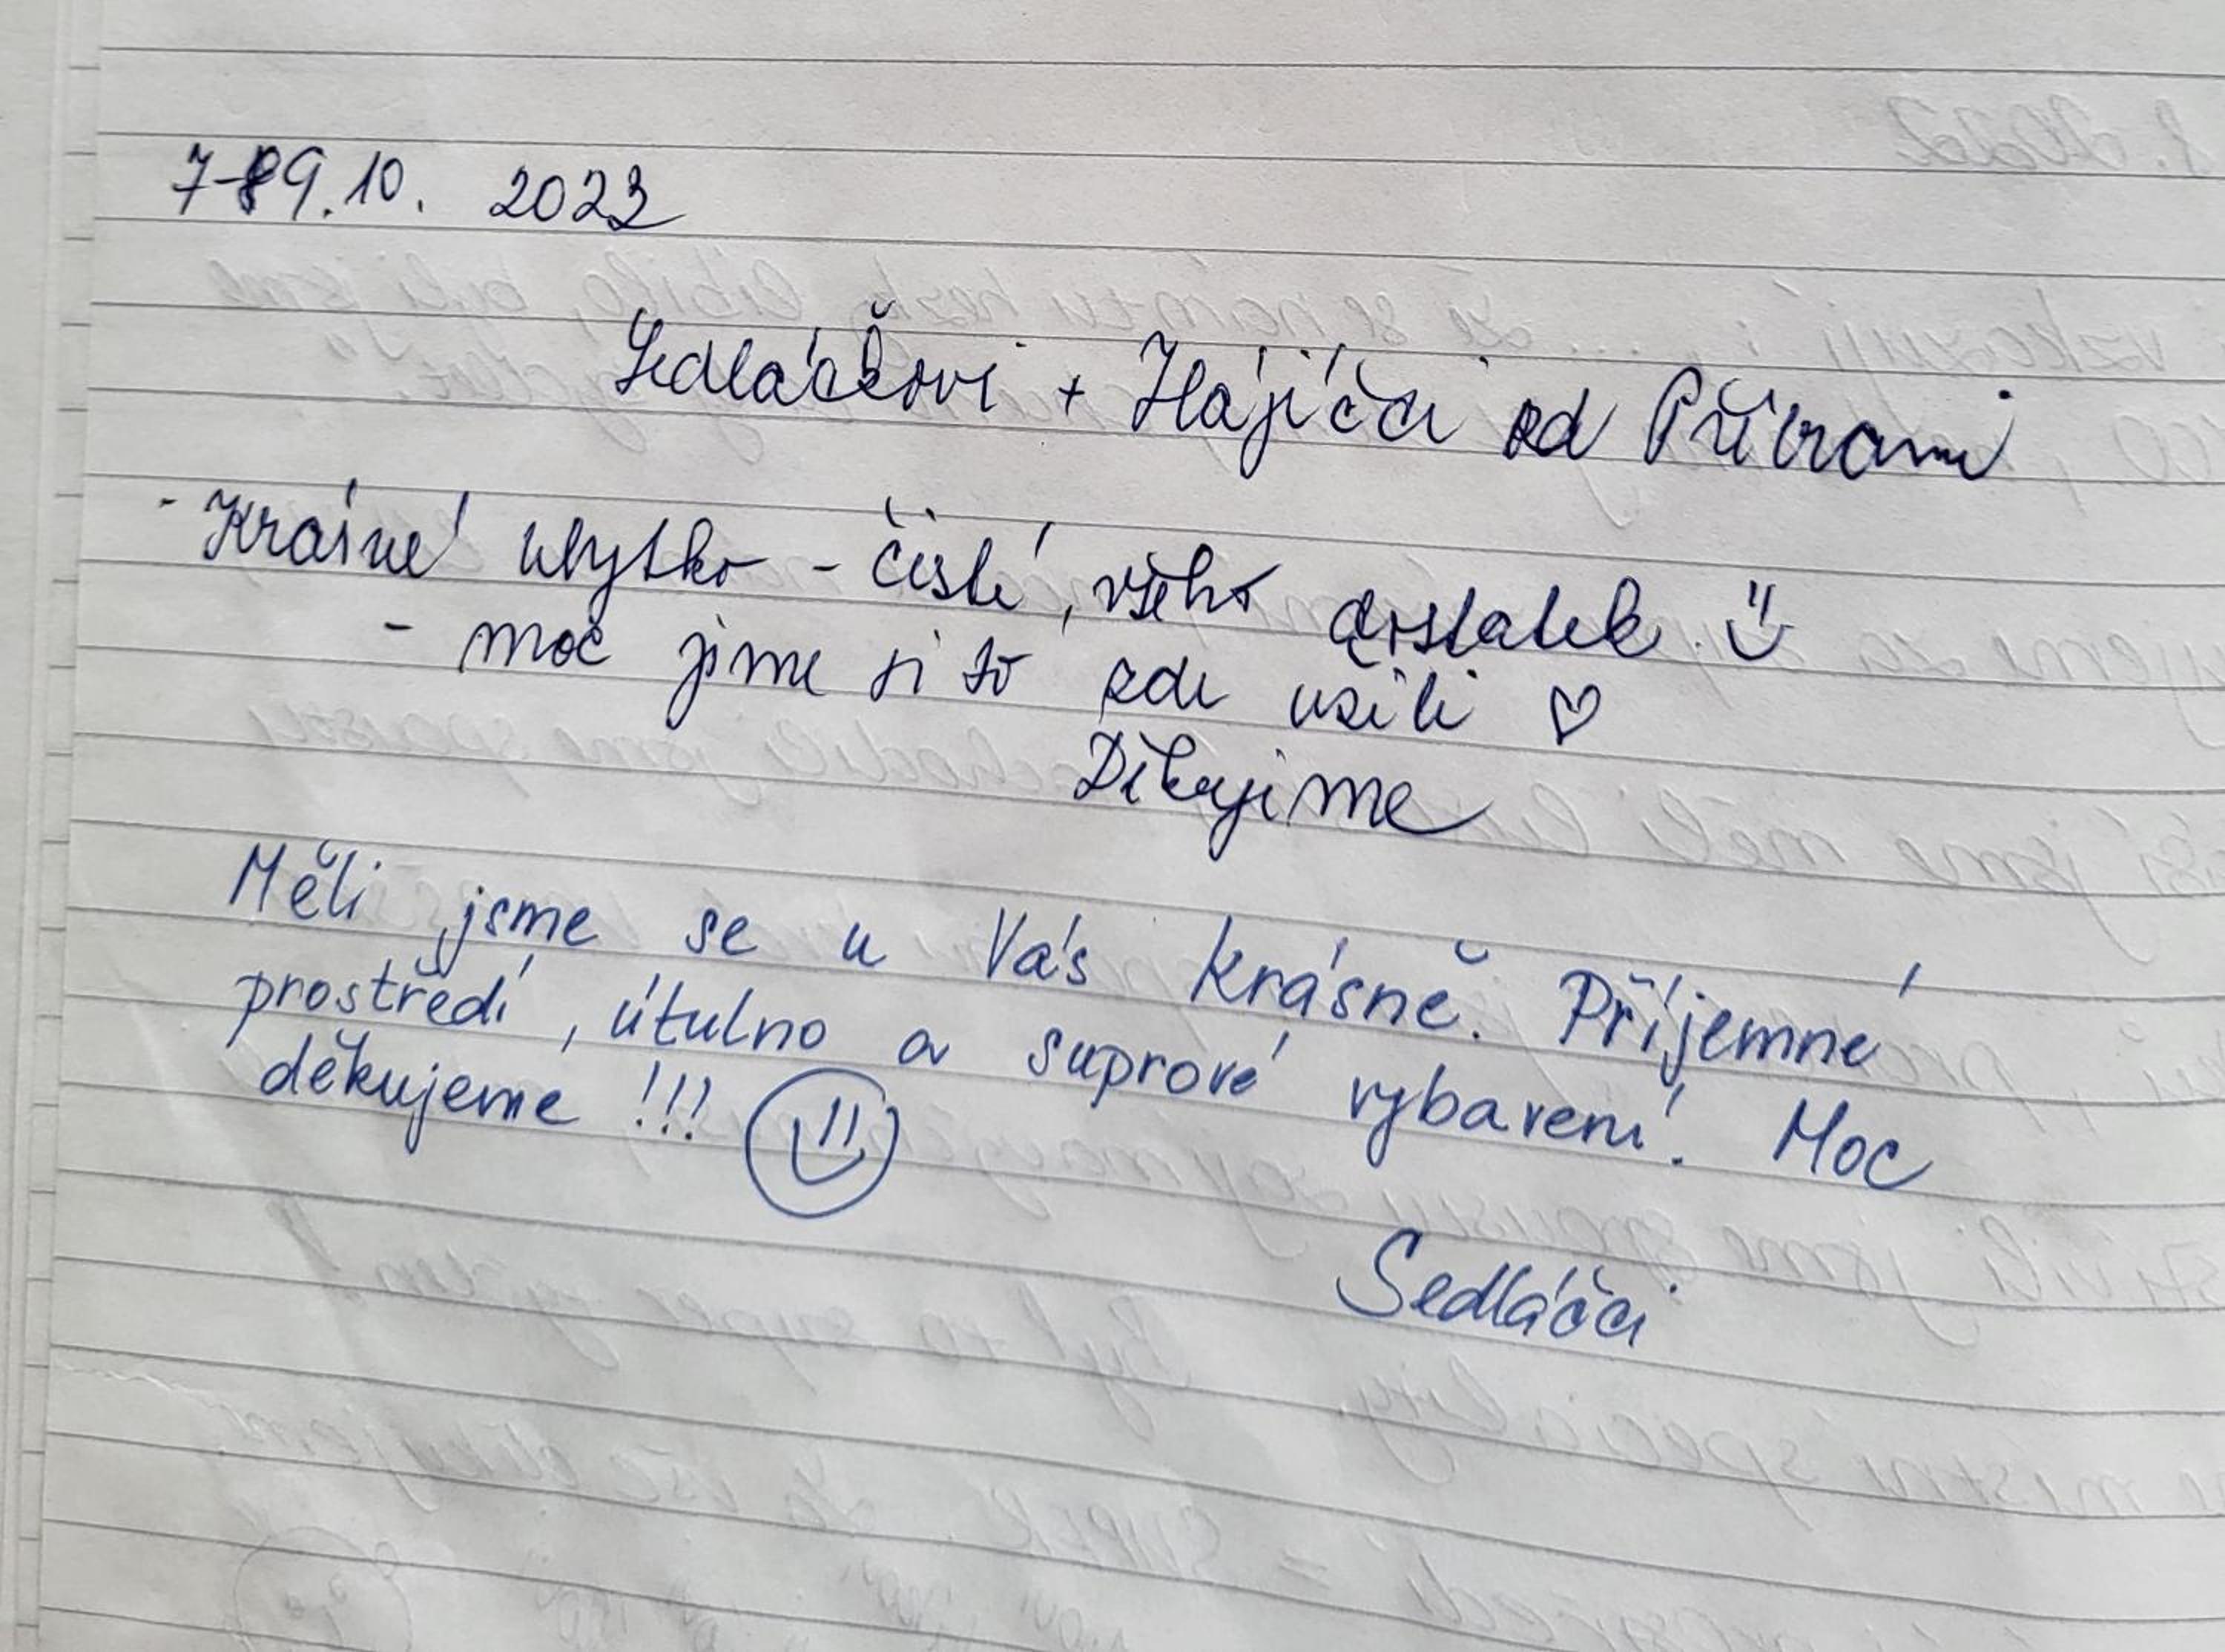 7-9.10. 2022
Sedláčkovi + Hájíčci od Příbrami
- Krásné ubytko - čisté, všeho dostatek
- moc jsme si to zde užili ♡
Děkujeme
Měli jsme se u Vás krásně. Příjemné
prostředí, útulno a suprové vybavení. Moc
děkujeme !!!
Sedláčci